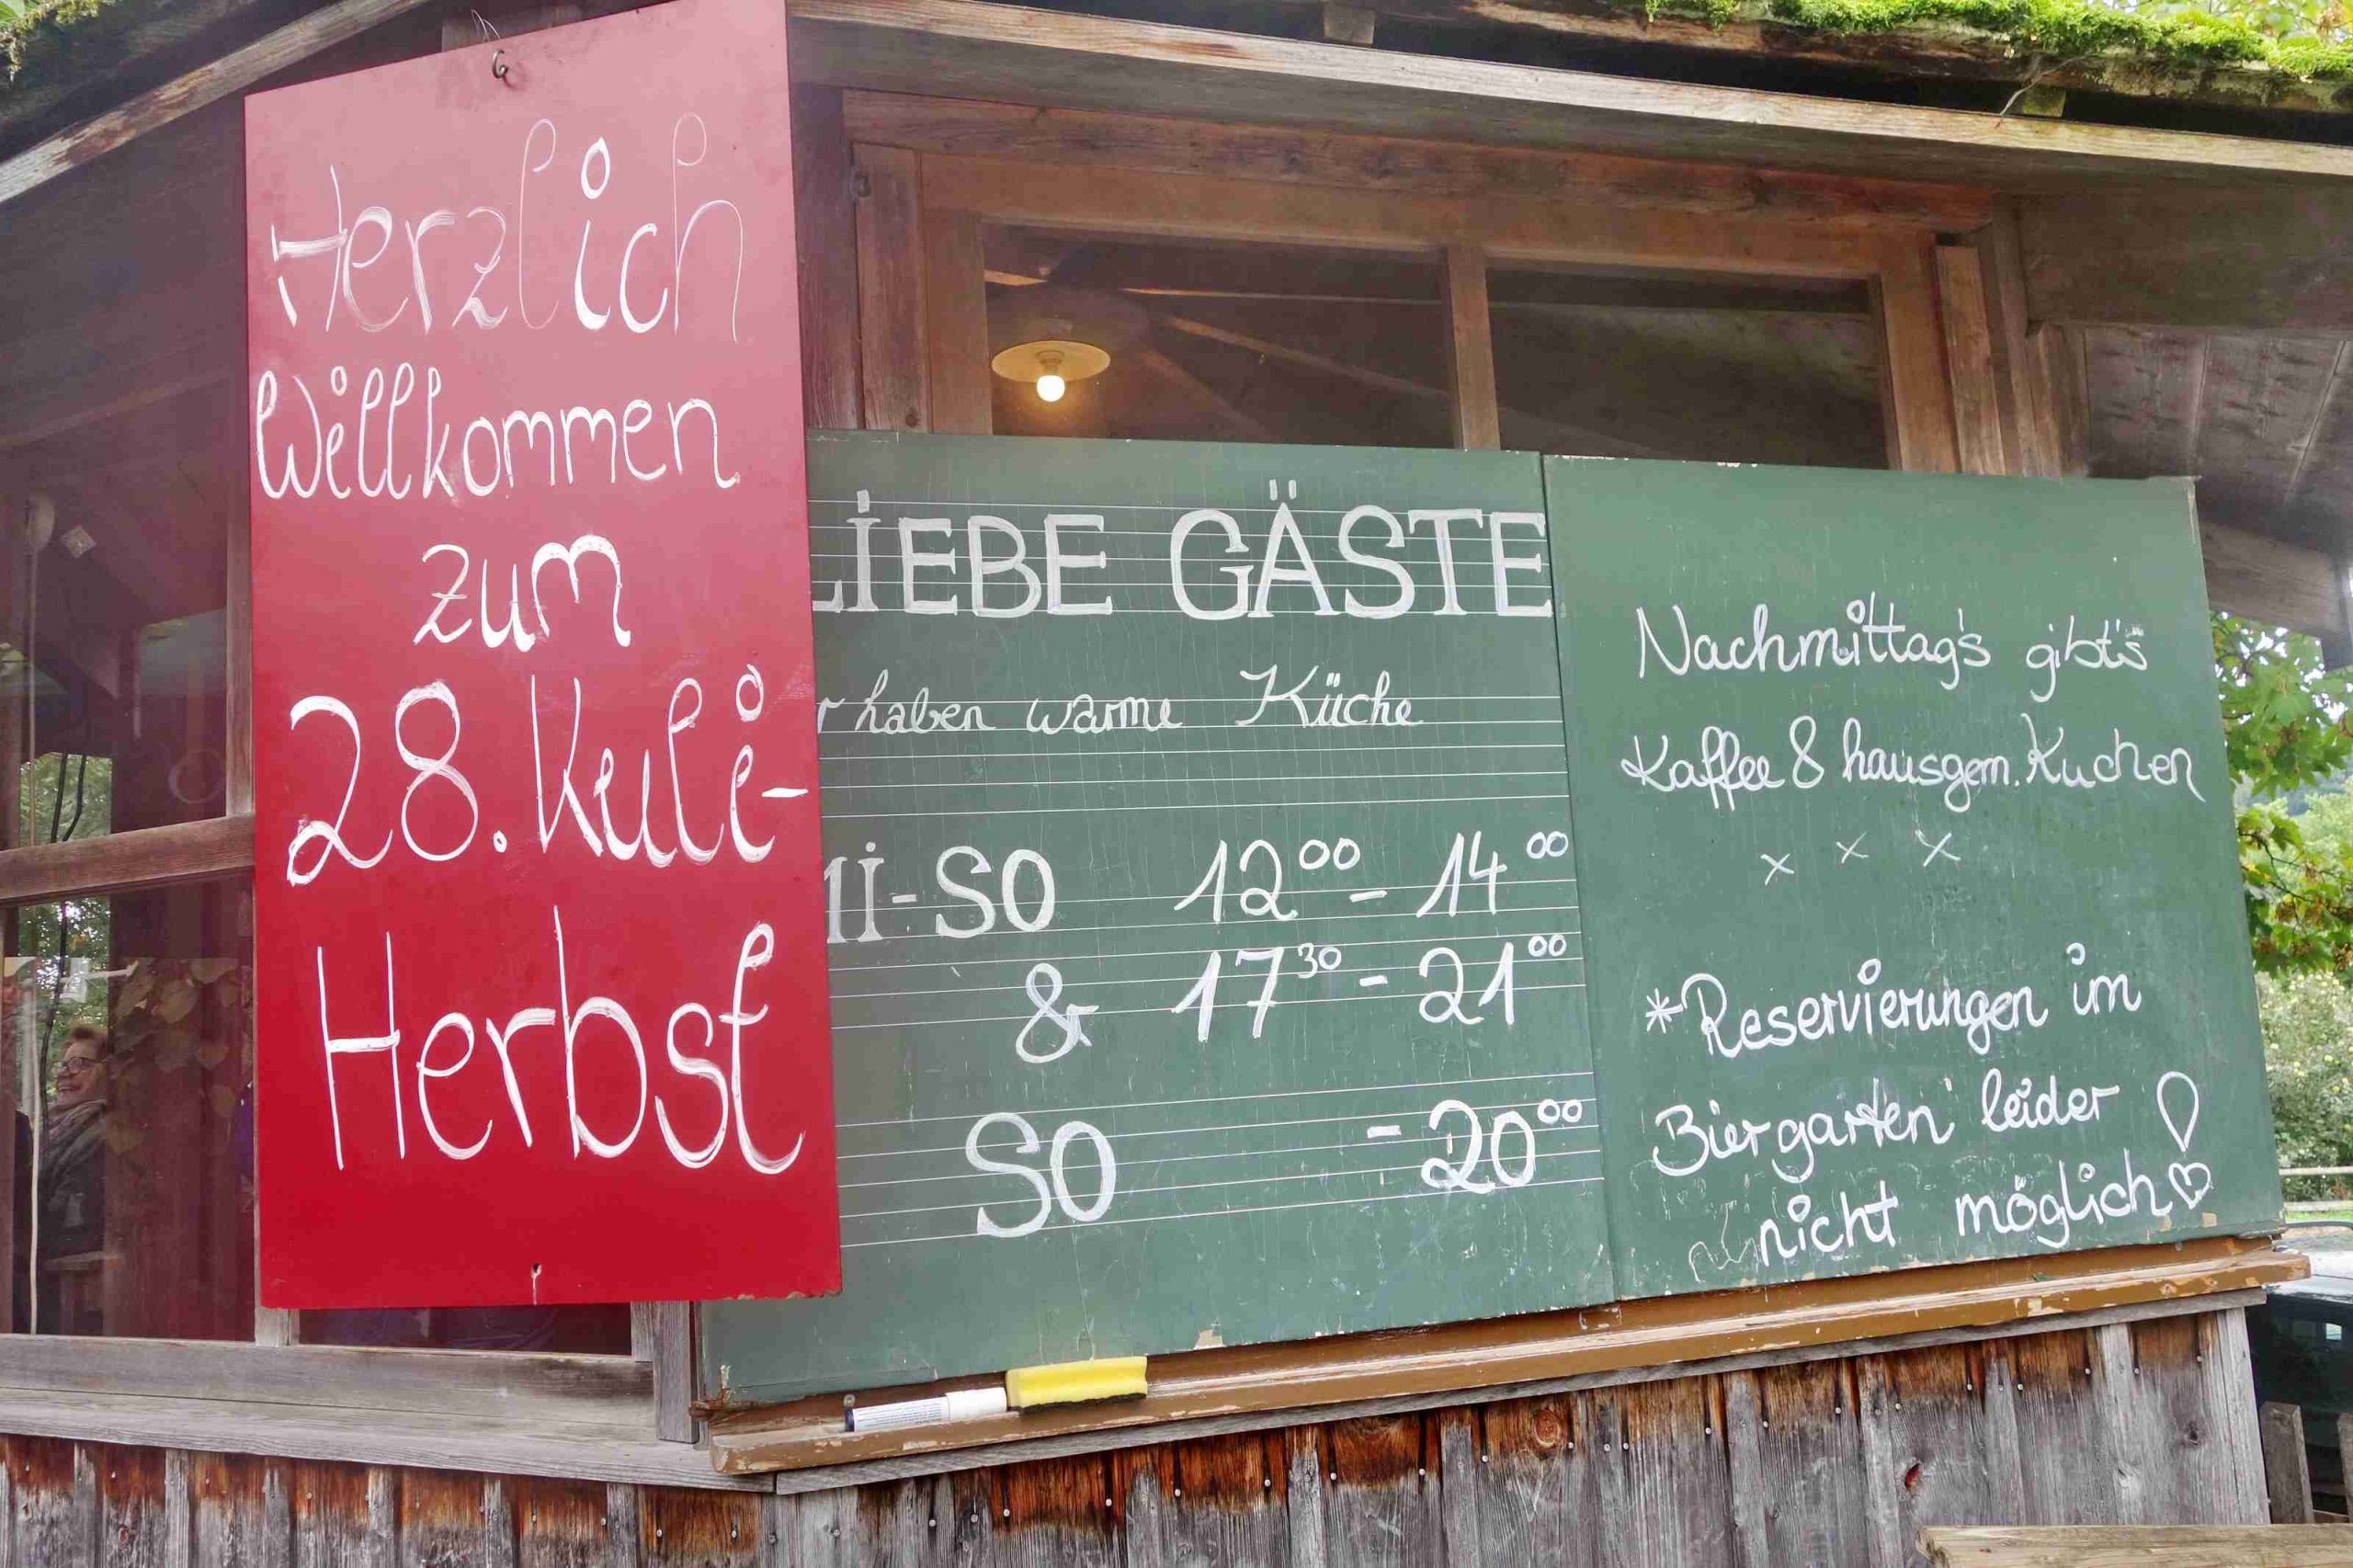 Herzlich
Willkommen
zum
28. Kuli-
Herbst
LIEBE GÄSTE
r haben warme Küche
MI-SO 12⁰⁰ - 14⁰⁰
& 17³⁰ - 21⁰⁰
SO - 20⁰⁰
Nachmittag's gibt's
Kaffee & hausgem. Kuchen
x x x
*Reservierungen im
Biergarten leider
nicht möglich!